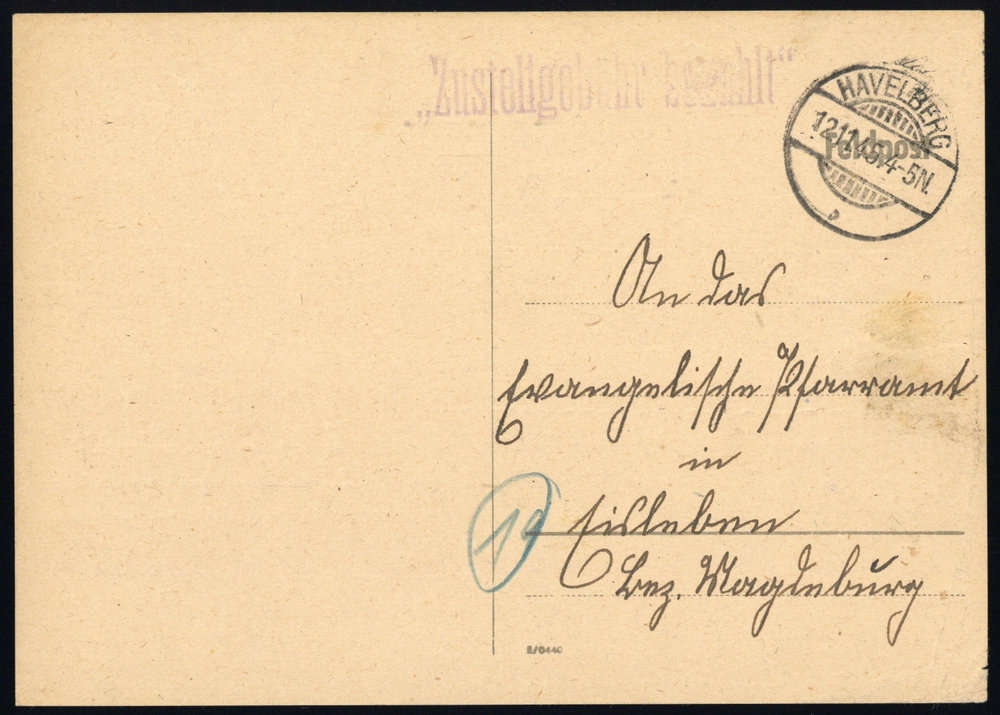 „Zustellgebühr bezahlt“
HAVELBERG
12.11.45.4-5N.
Feldpost
An das
Evangelische Pfarramt
in
Eisleben
Bez. Magdeburg
19